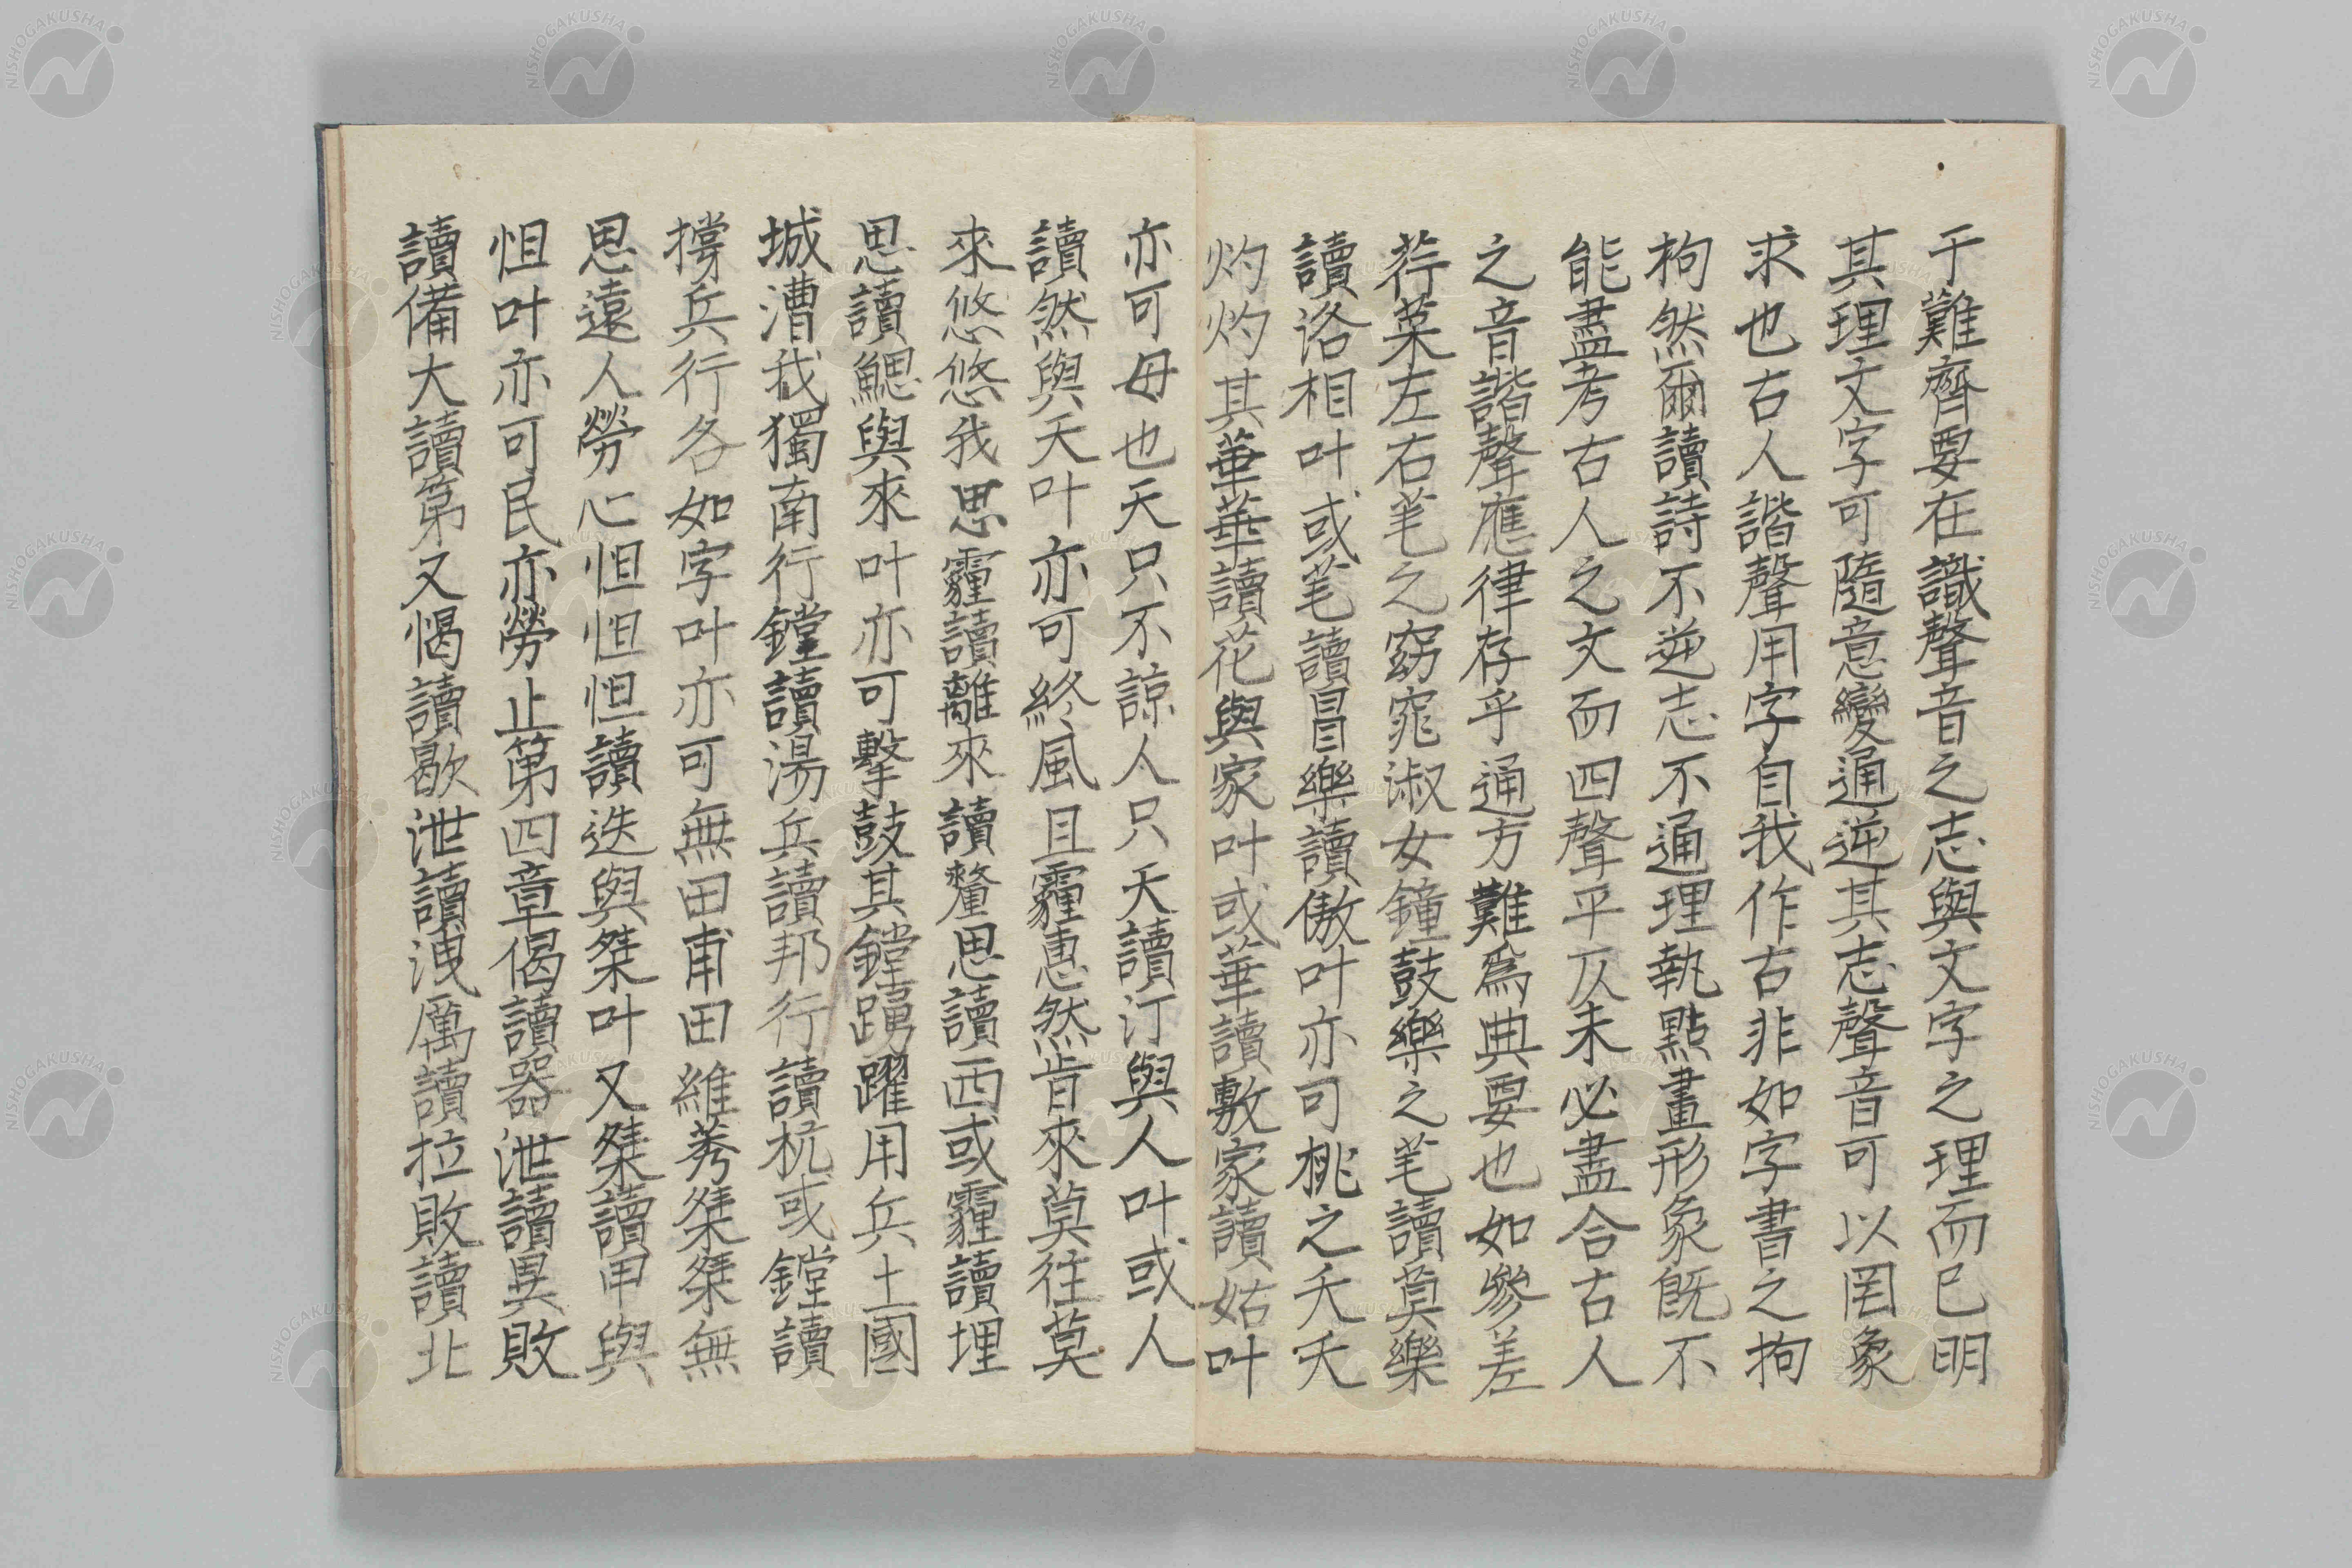 于難齊要在識聲音之志與文字之理而已明
其理文字可隨意變通逆其志聲音可以罔象
求也古人諧聲用字自我作古非如字書之拘
拘然爾讀詩不逆志不通理執點畫形象旣不
能盡考古人之文而四聲平仄未必盡合古人
之音諧聲應律存乎通方難爲典要也如參差
荇菜左右芼之窈窕淑女鐘鼓樂之芼讀莫樂
讀洛相叶或芼讀冒樂讀傲叶亦可桃之夭夭
灼灼其華華讀花與家叶或華讀敷家讀姑叶
亦可母也天只不諒人只天讀汀與人叶或人
讀然與天叶亦可終風且霾惠然肯來莫往莫
來悠悠我思霾讀離來讀釐思讀西或霾讀埋
思讀鰓與來叶亦可擊鼓其鏜踴躍用兵土國
城漕我獨南行鏜讀湯兵讀邦行讀杭或鏜讀
撐兵行各如字叶亦可無田甫田維莠桀桀無
思遠人勞心怛怛怛讀迭與桀叶又桀讀甲與
怛叶亦可民亦勞止第四章愒讀器泄讀異敗
讀備大讀第又愒讀歇泄讀洩厲讀拉敗讀北
NISHOGAKUSHA